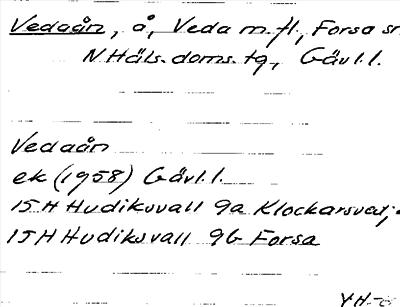 Vedaån, å, Veda m.fl., Forsa sn
N Häls. doms. tg, Gävl.l.
Vedaån
ek (1958) Gävl.l.
15H Hudiksvall 9a Klockarsvad;
15H Hudiksvall 9b Forsa